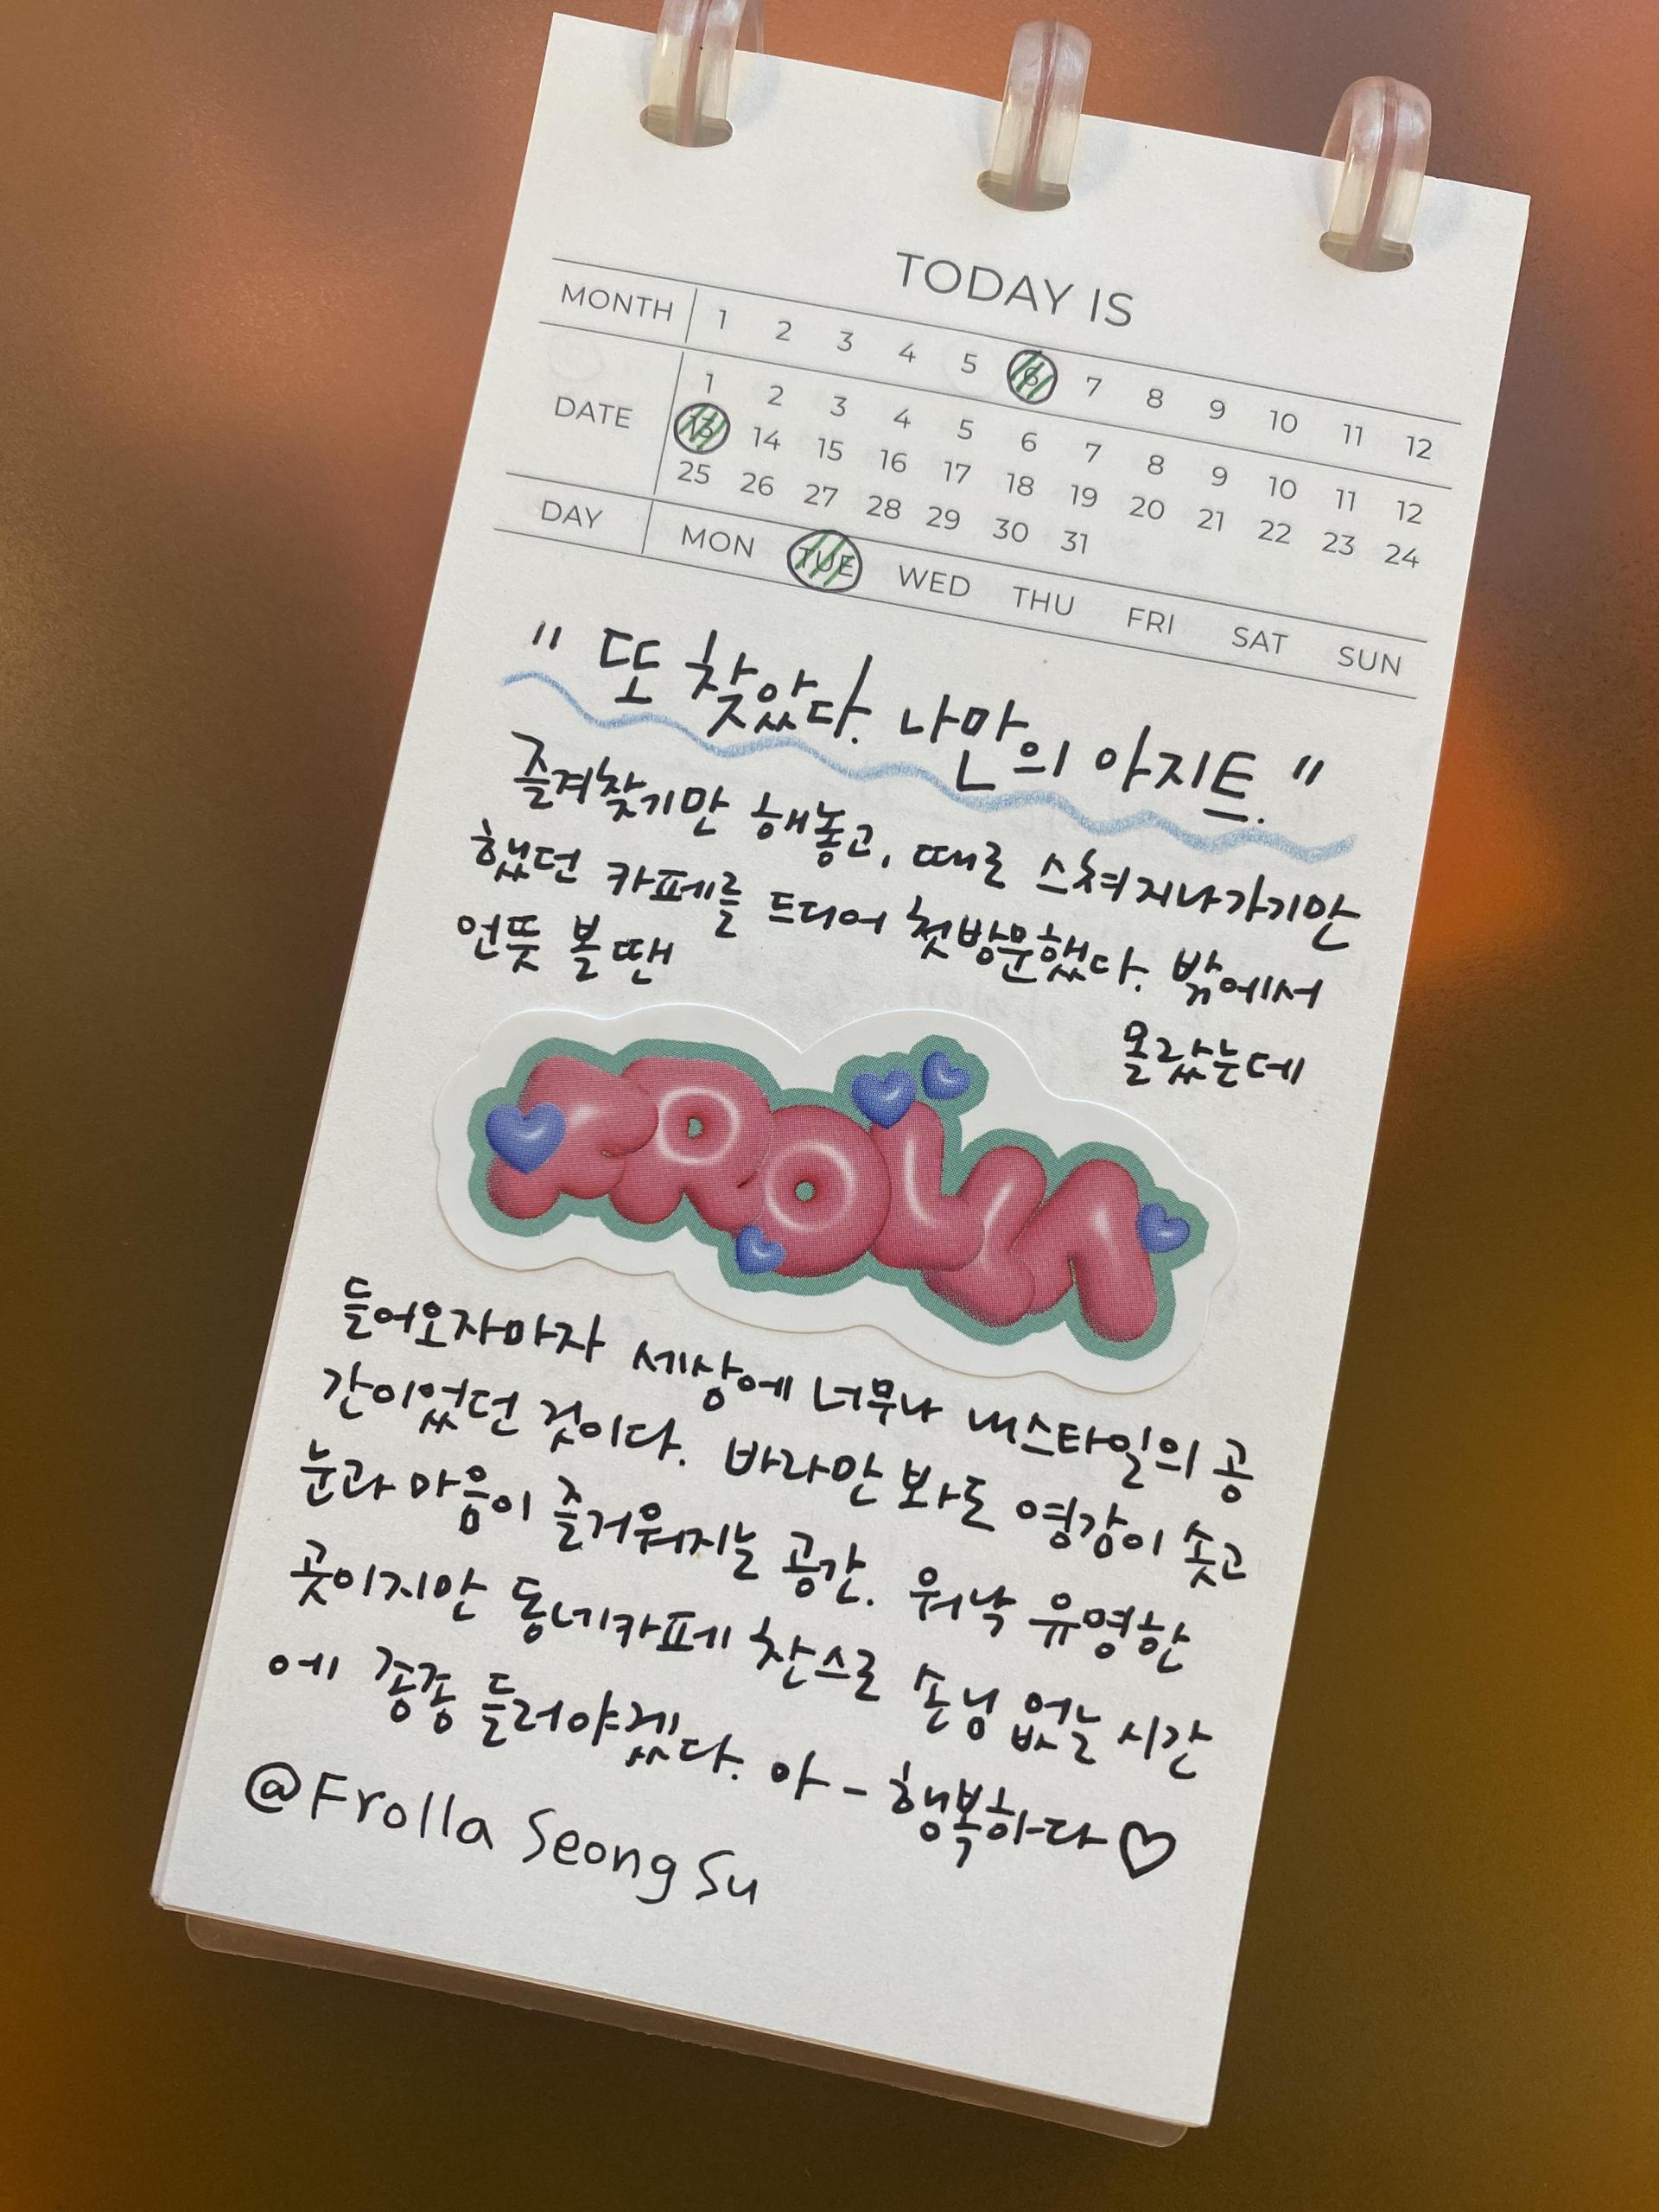 TODAY IS
MONTH 1 2 3 4 5 6 7 8 9 10 11 12
DATE 1 2 3 4 5 6 7 8 9 10 11 12
13 14 15 16 17 18 19 20 21 22 23 24
25 26 27 28 29 30 31
DAY MON TUE WED THU FRI SAT SUN
"또 찾았다. 나만의 아지트."
즐겨찾기만 해놓고, 때로 스쳐지나가기만
했던 카페를 드디어 첫방문했다. 밖에서
언뜻 볼 땐
몰랐는데
FROLLA
들어오자마자 세상에 너무나 내스타일의 공
간이었던 것이다. 바라만 봐도 영감이 솟고
눈과 마음이 즐거워지는 공간. 워낙 유명한
곳이지만 동네카페 찬스로 손님 없는 시간
에 종종 들러야겠다. 아 - 행복하다♡
@Frolla Seong Su